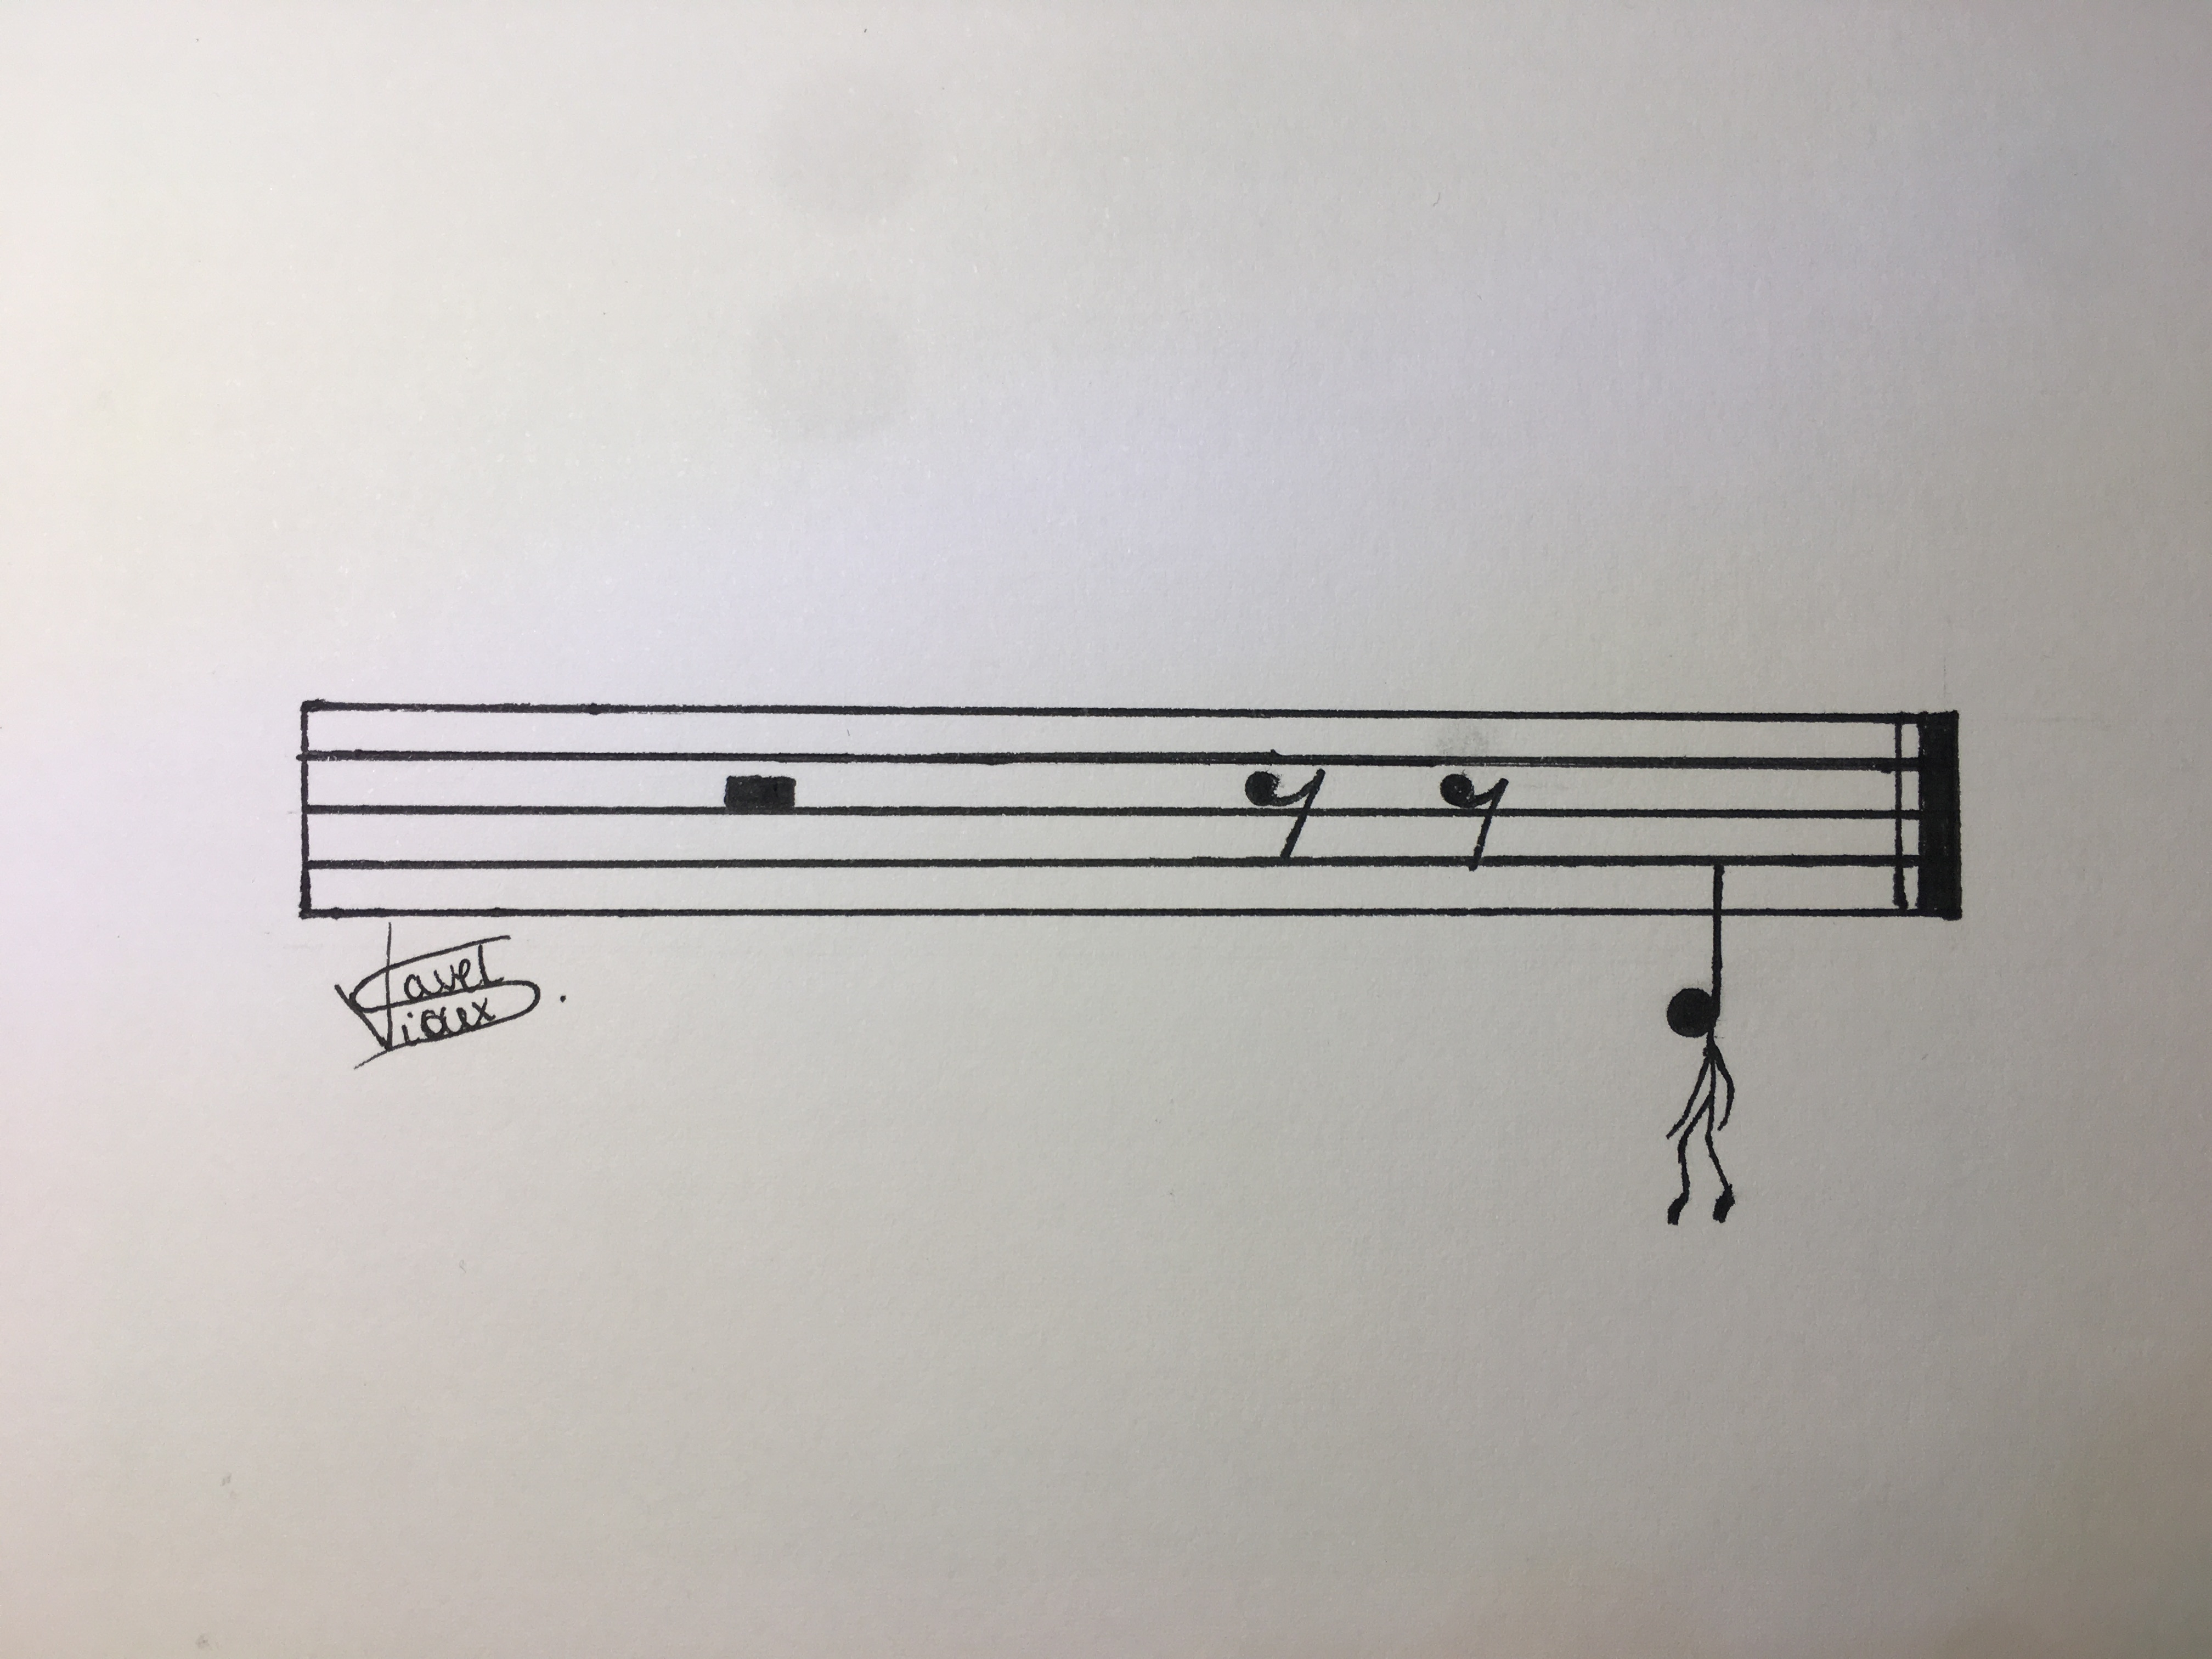 Pavel
Vioux